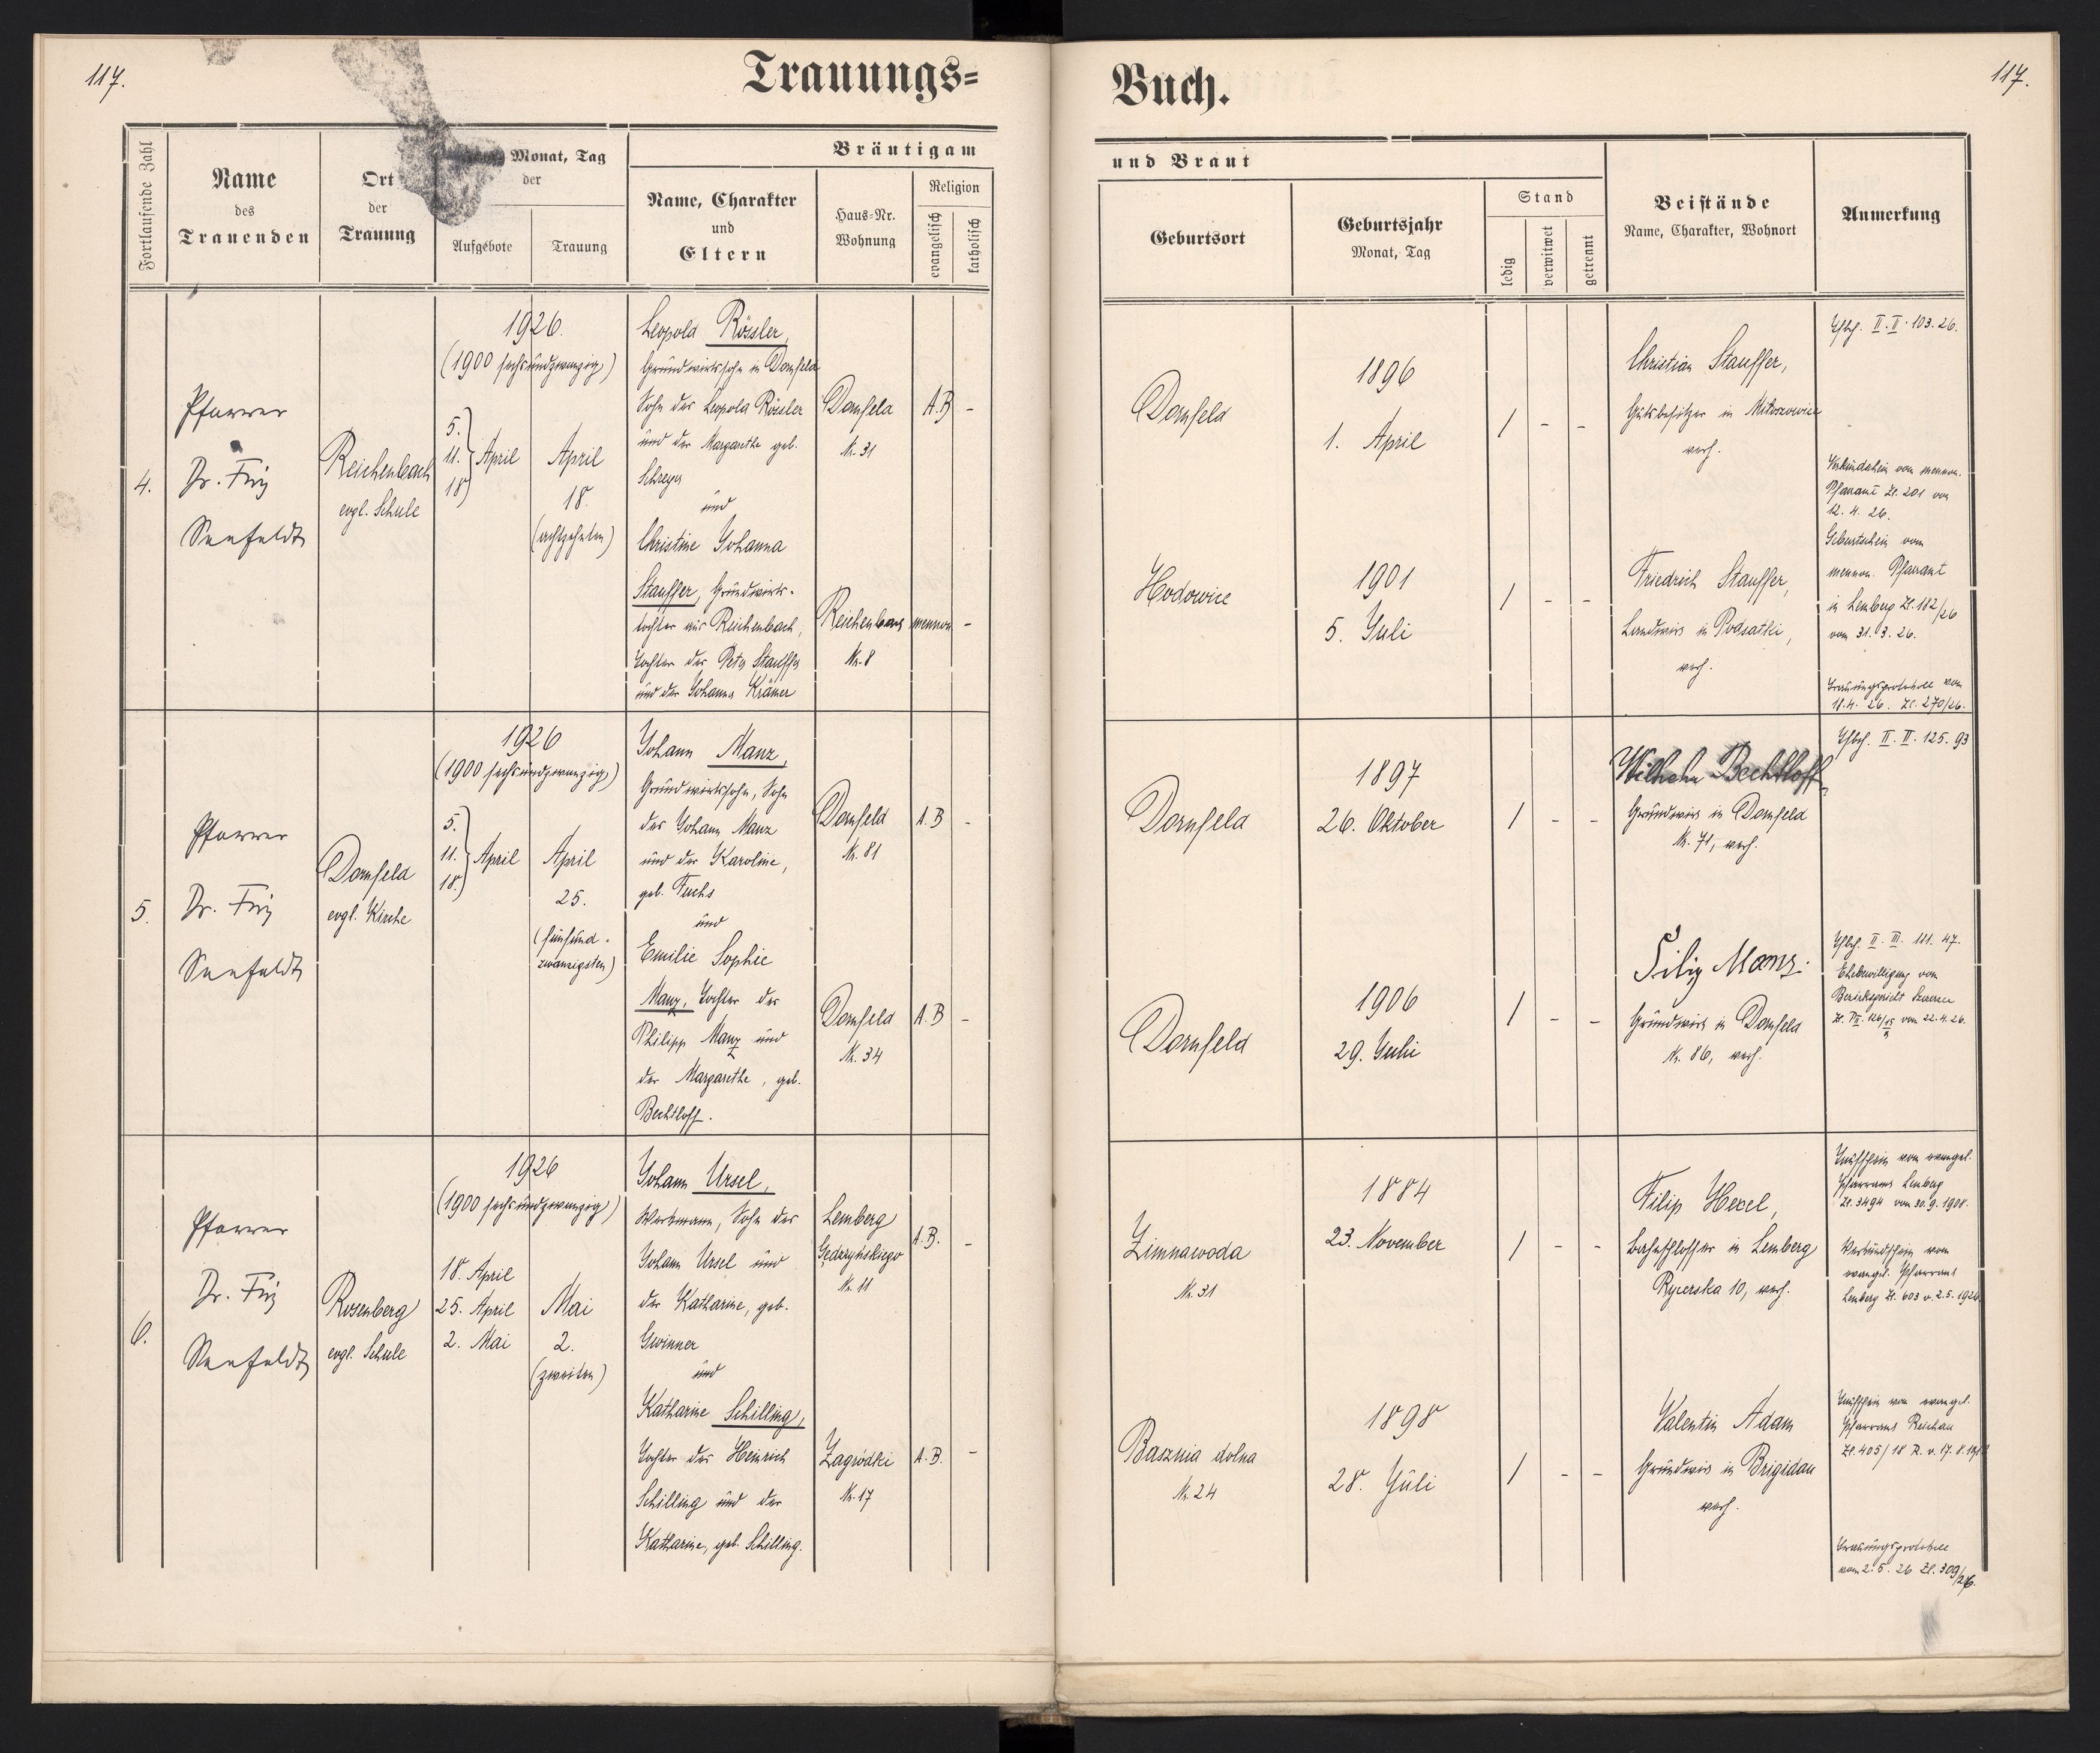 117.
Trauungs=
Fortlaufende Zahl
Name
des
Trauenden
Ort
der
Trauung
Monat, Tag
der
Aufgebote
Trauung
Bräutigam
Name, Charakter
und
Eltern
Haus=Nr.
Wohnung
Religion
evangelisch
katholisch
4.
Pfarrer
Dr. Fritz
Seefeldt
Reichenbach
evgl. Schule
1926.
(1900 sechsundzwanzig)
5.
11. April
18.
April
18.
(achtzehnten)
Leopold Rössler,
Grundwirtssohn in Dornfeld
Sohn des Leopold Rössler
und der Margarethe geb.
Schreyer
und
Christine Johanna
Stauffer, Grundwirts-
tochter aus Reichenbach,
Tochter des Peter Stauffer
und der Johanna Krämer
Dornfeld
Nr. 31
A.B -
Reichenbach
Nr. 8
mennon. -
5.
Pfarrer
Dr. Fritz
Seefeldt
Dornfeld
evgl. Kirche
1926
(1900 sechsundzwanzig)
5.
11. April
18.
April
25.
(fünfund-
zwanzigsten)
Johann Manz,
Grundwirtssohn, Sohn
des Johann Manz
und der Karoline,
geb. Fuchs
und
Emilie Sophie
Manz, Tochter des
Philipp Manz und
der Margarethe, geb.
Bechtloff.
Dornfeld
Nr. 81
A.B -
Dornfeld
Nr. 34
A.B -
6.
Pfarrer
Dr. Fritz
Seefeldt
Rosenberg
evgl. Schule
1926
(1900 sechsundzwanzig)
18. April
25. April
2. Mai
Mai
2.
(zweiten)
Johann Ursel,
Werkmann, Sohn des
Johann Ursel und
der Katharine, geb.
Gwinner
und
Katharine Schilling,
Tochter des Heinrich
Schilling und der
Katharine, geb. Schilling.
Lemberg
Nr. 11
A.B. -
Zagródki
Nr. 17
A.B. -
117.
Buch.
und Braut
Geburtsort
Geburtsjahr
Monat, Tag
Stand
ledig
verwitwet
getrennt
Beistände
Name, Charakter, Wohnort
Anmerkung
Dornfeld
1896
1. April
/ - -
Christian Stauffer,
Gutsbesitzer in
verh.
II. II. 103. 26.
Verkündschein vom mennon.
Pfarramt Zl. 201 vom
12. 4. 26.
Hodowice
1901
5. Juli
/ - -
Friedrich Stauffer,
Landwirt in Podsatki,
verh.
Geburtschein vom
mennon. Pfarramt
in Lemberg Zl. 182/26
vom 31. 3. 26.
Trauungsprotokoll vom
18. 4. 26. Zl. 270/26.
Dornfeld
1897
26. Oktober
/ - -
Wilhelm Bechtloff,
Grundwirt in Dornfeld
Nr. 71, verh.
II. II. 125. 93
Dornfeld
1906
29. Juli
/ - -
Filip Manz.
Grundwirt in Dornfeld
Nr. 86, verh.
II. III. 111. 47.
Ehebewilligung vom
Bezirksgericht
vom 22. 4. 26.
Zimnawoda
Nr. 31
1884
23. November
/ - -
Filip Hexel,
Bahnschlosser in Lemberg
Rycerska 10, verh.
Taufschein vom evangel.
Pfarramt Lemberg
Zl. 3494 vom 30. 9. 1908.
Verkündschein vom
evangel. Pfarramt
Lemberg Zl. 603 v. 2. 5. 1926
Basznia dolna
Nr. 24
1898
28. Juli
/ - -
Valentin Adam
Grundwirt in Brigidau
verh.
Taufschein vom evangel.
Pfarramt Reichau
Zl. 405/18 R. v. 17. 8.
Trauungsprotokoll
vom 2. 5. 26 Zl. 309/26.